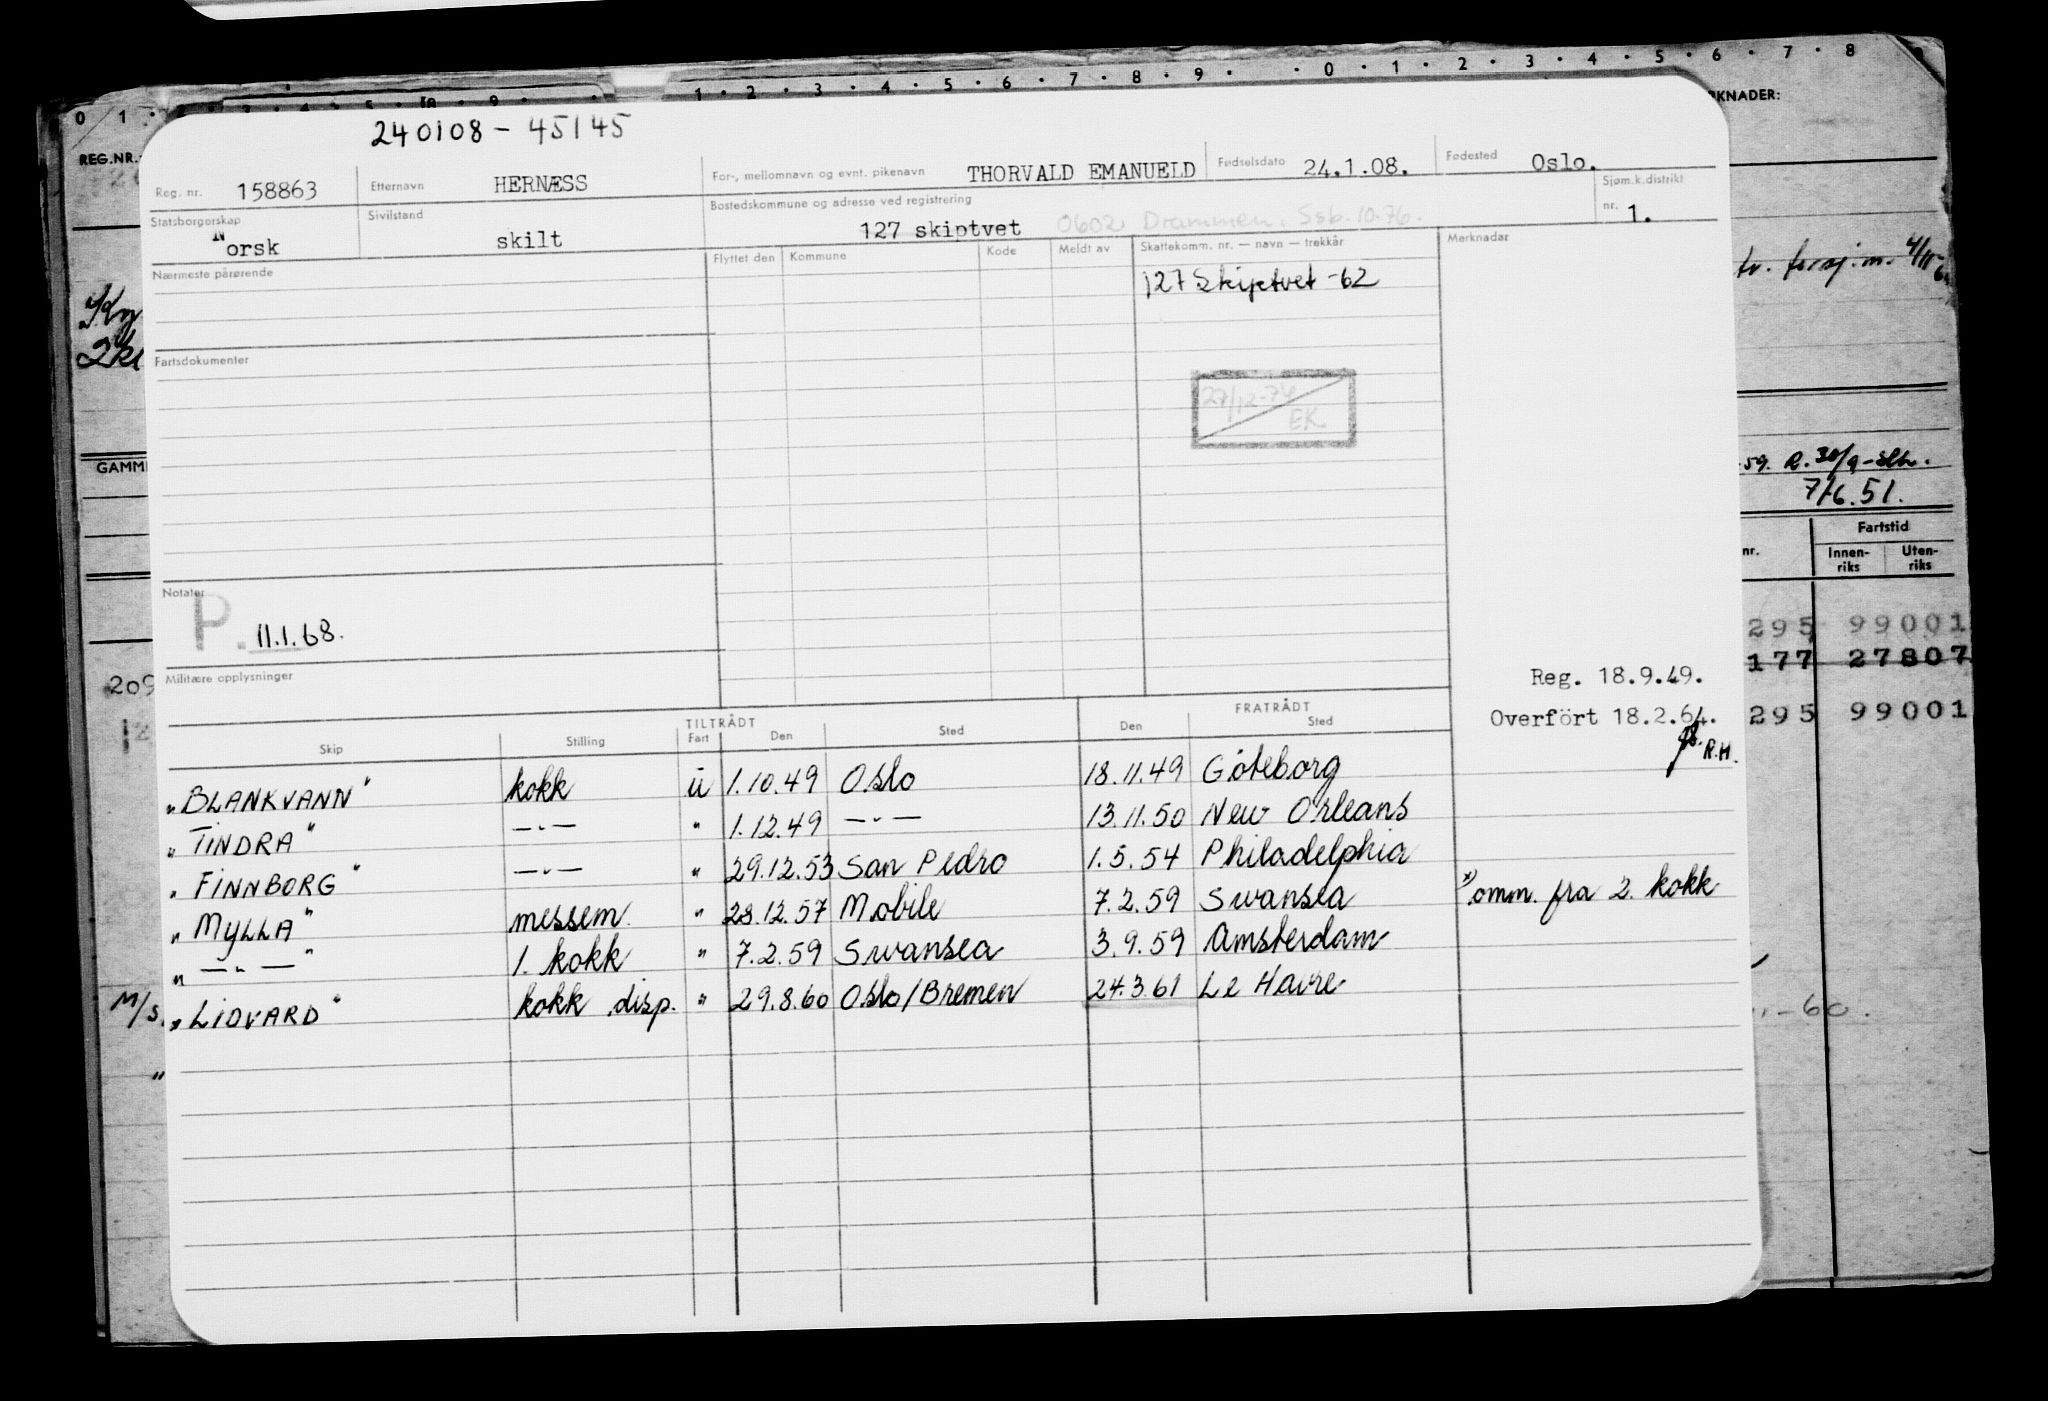 0 1 · 3 · 4 · 5 · 9 · 1 · 2 · 3 · 4 · 5 · 6 · 7 · 8 · 9 · · 0 · 1 · 2 · 3 · 4 · 5 · 6 · 7 · 8
REG.NR.
RKNADER:
240108 - 45145
Reg. nr. 158863 Etternavn HERNÆSS For-, mellomnavn og evnt. pikenavn THORVALD EMANUELD Fødselsdato 24.1.08. Fødested Oslo.
Statsborgerskap Norsk Sivilstand skilt Bostedskommune og adresse ved registrering 127 skiptvet 0602 Drammen, Ssb. 10-76. Sjøm.k.distrikt nr. 1.
Nærmeste pårørende Flyttet den Kommune Kode Meldt av Skattekomm. nr. — navn — trekkår Merknader
127 Skiptvet -62
Fartsdokumenter
27/12-74
EK
GAMM
59. R. 30/9
7/6.51.
nr. Fartstid
Innen-riks Uten-riks
Notater
P. 11.1.68.
295 99001
177 27807
Militære opplysninger
209
Reg. 18.9.49.
Overfört 18.2.64.
295 99001
R.H.
TILTRÅDT FRATRÅDT
Skip Stilling Fart Den Sted Den Sted
"BLANKVANN" kokk u 1.10.49 Oslo 18.11.49 Göteborg
"TINDRA" —"— " 1.12.49 —"— 13.11.50 New Orleans
"FINNBORG" —"— " 29.12.53 San Pedro 1.5.54 Philadelphia
"MYLLA" messem. " 28.12.57 Mobile 7.2.59 Swansea x) omm. fra 2. kokk
"—"—" 1. kokk " 7.2.59 Swansea 3.9.59 Amsterdam
M/S. "LIDVARD" kokk disp. " 29.8.60 Oslo/Bremen 24.3.61 Le Havre
-60.
"